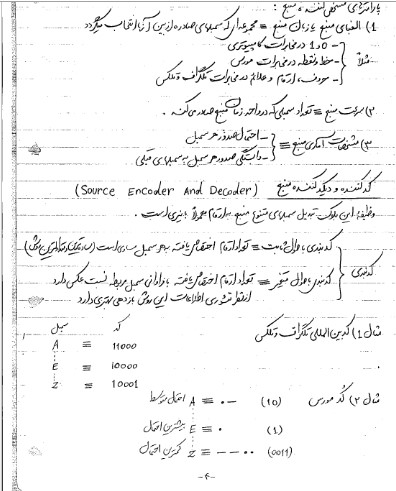 پارامترهای مشخص کننده منبع :
۱) الفبای منبع یا زبان منبع ≡ مجموعه‌ای که سمبلهای صادره از بین آن انتخاب میگردد
مثلاً
- 0 و 1 در مخابرات کامپیوتری
- خط و نقطه در مخابرات مورس
- حروف، ارقام و علائم در مخابرات تلگراف و تلکس
۲) سرعت منبع ≡ تعداد سمبلی که در واحد زمان منبع صادر می‌کند.
۳) مشخصات آماری منبع ≡
- احتمال صدور هر سمبل
- وابستگی صدور هر سمبل به سمبلهای قبلی
کد کننده و دیکد کننده منبع (Source Encoder And Decoder)
وظیفه این بلوک تبدیل سمبلهای منبع به ارقام معمولاً باینری است.
کدبندی
کدبندی با طول ثابت ≡ تعداد ارقام اختصاص یافته به هر سمبل مساوی است
کدبندی با طول متغیر ≡ تعداد ارقام اختصاص یافته با فراوانی سمبل مربوطه نسبت عکس دارد
از نظر تئوری اطلاعات این روش بازدهی بهتری دارد
مثال ۱) کد بین المللی تلگراف و تلکس
سمبل کد
A ≡ 11000
E ≡ 10000
Z ≡ 10001
مثال ۲) کد مورس
A ≡ ·— (10) احتمال متوسط
E ≡ · (1) بیشترین احتمال
Z ≡ ——·· (0011) کمترین احتمال
-۴-